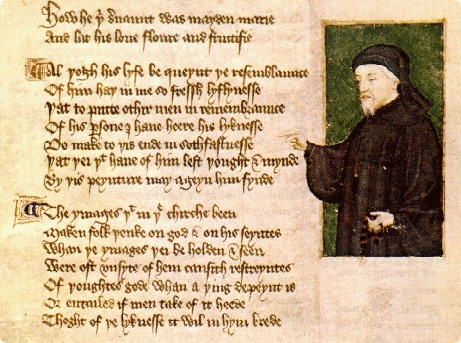 How he þͭ ẜuaunt was mayden marie
And lat his loue floure and fructifie
Al þogh his lyfe be queynt þe resemblaunce
Of him haþ in me so fressh lyflynesse
Þat to putte othir men in remembraunce
Of his ꝑsone I haue heere his lyknesse
Do make to þis ende in sothfastnesse
Þat þei þͭ haue of him lest þought & mynde
By þis peynture may ageyn him fynde
The ymages þͭ in þͤ chirche been
Maken folk þenke on god & on his seyntes
Whan þe ymages þei be holden & seen
Were oft vnsyte of hem causith restreyntes
Of þoughtes gode whan a þing depeynt is
Or entailed if men take of it heede
Thoght of þe lyknesse it wil in hym brede